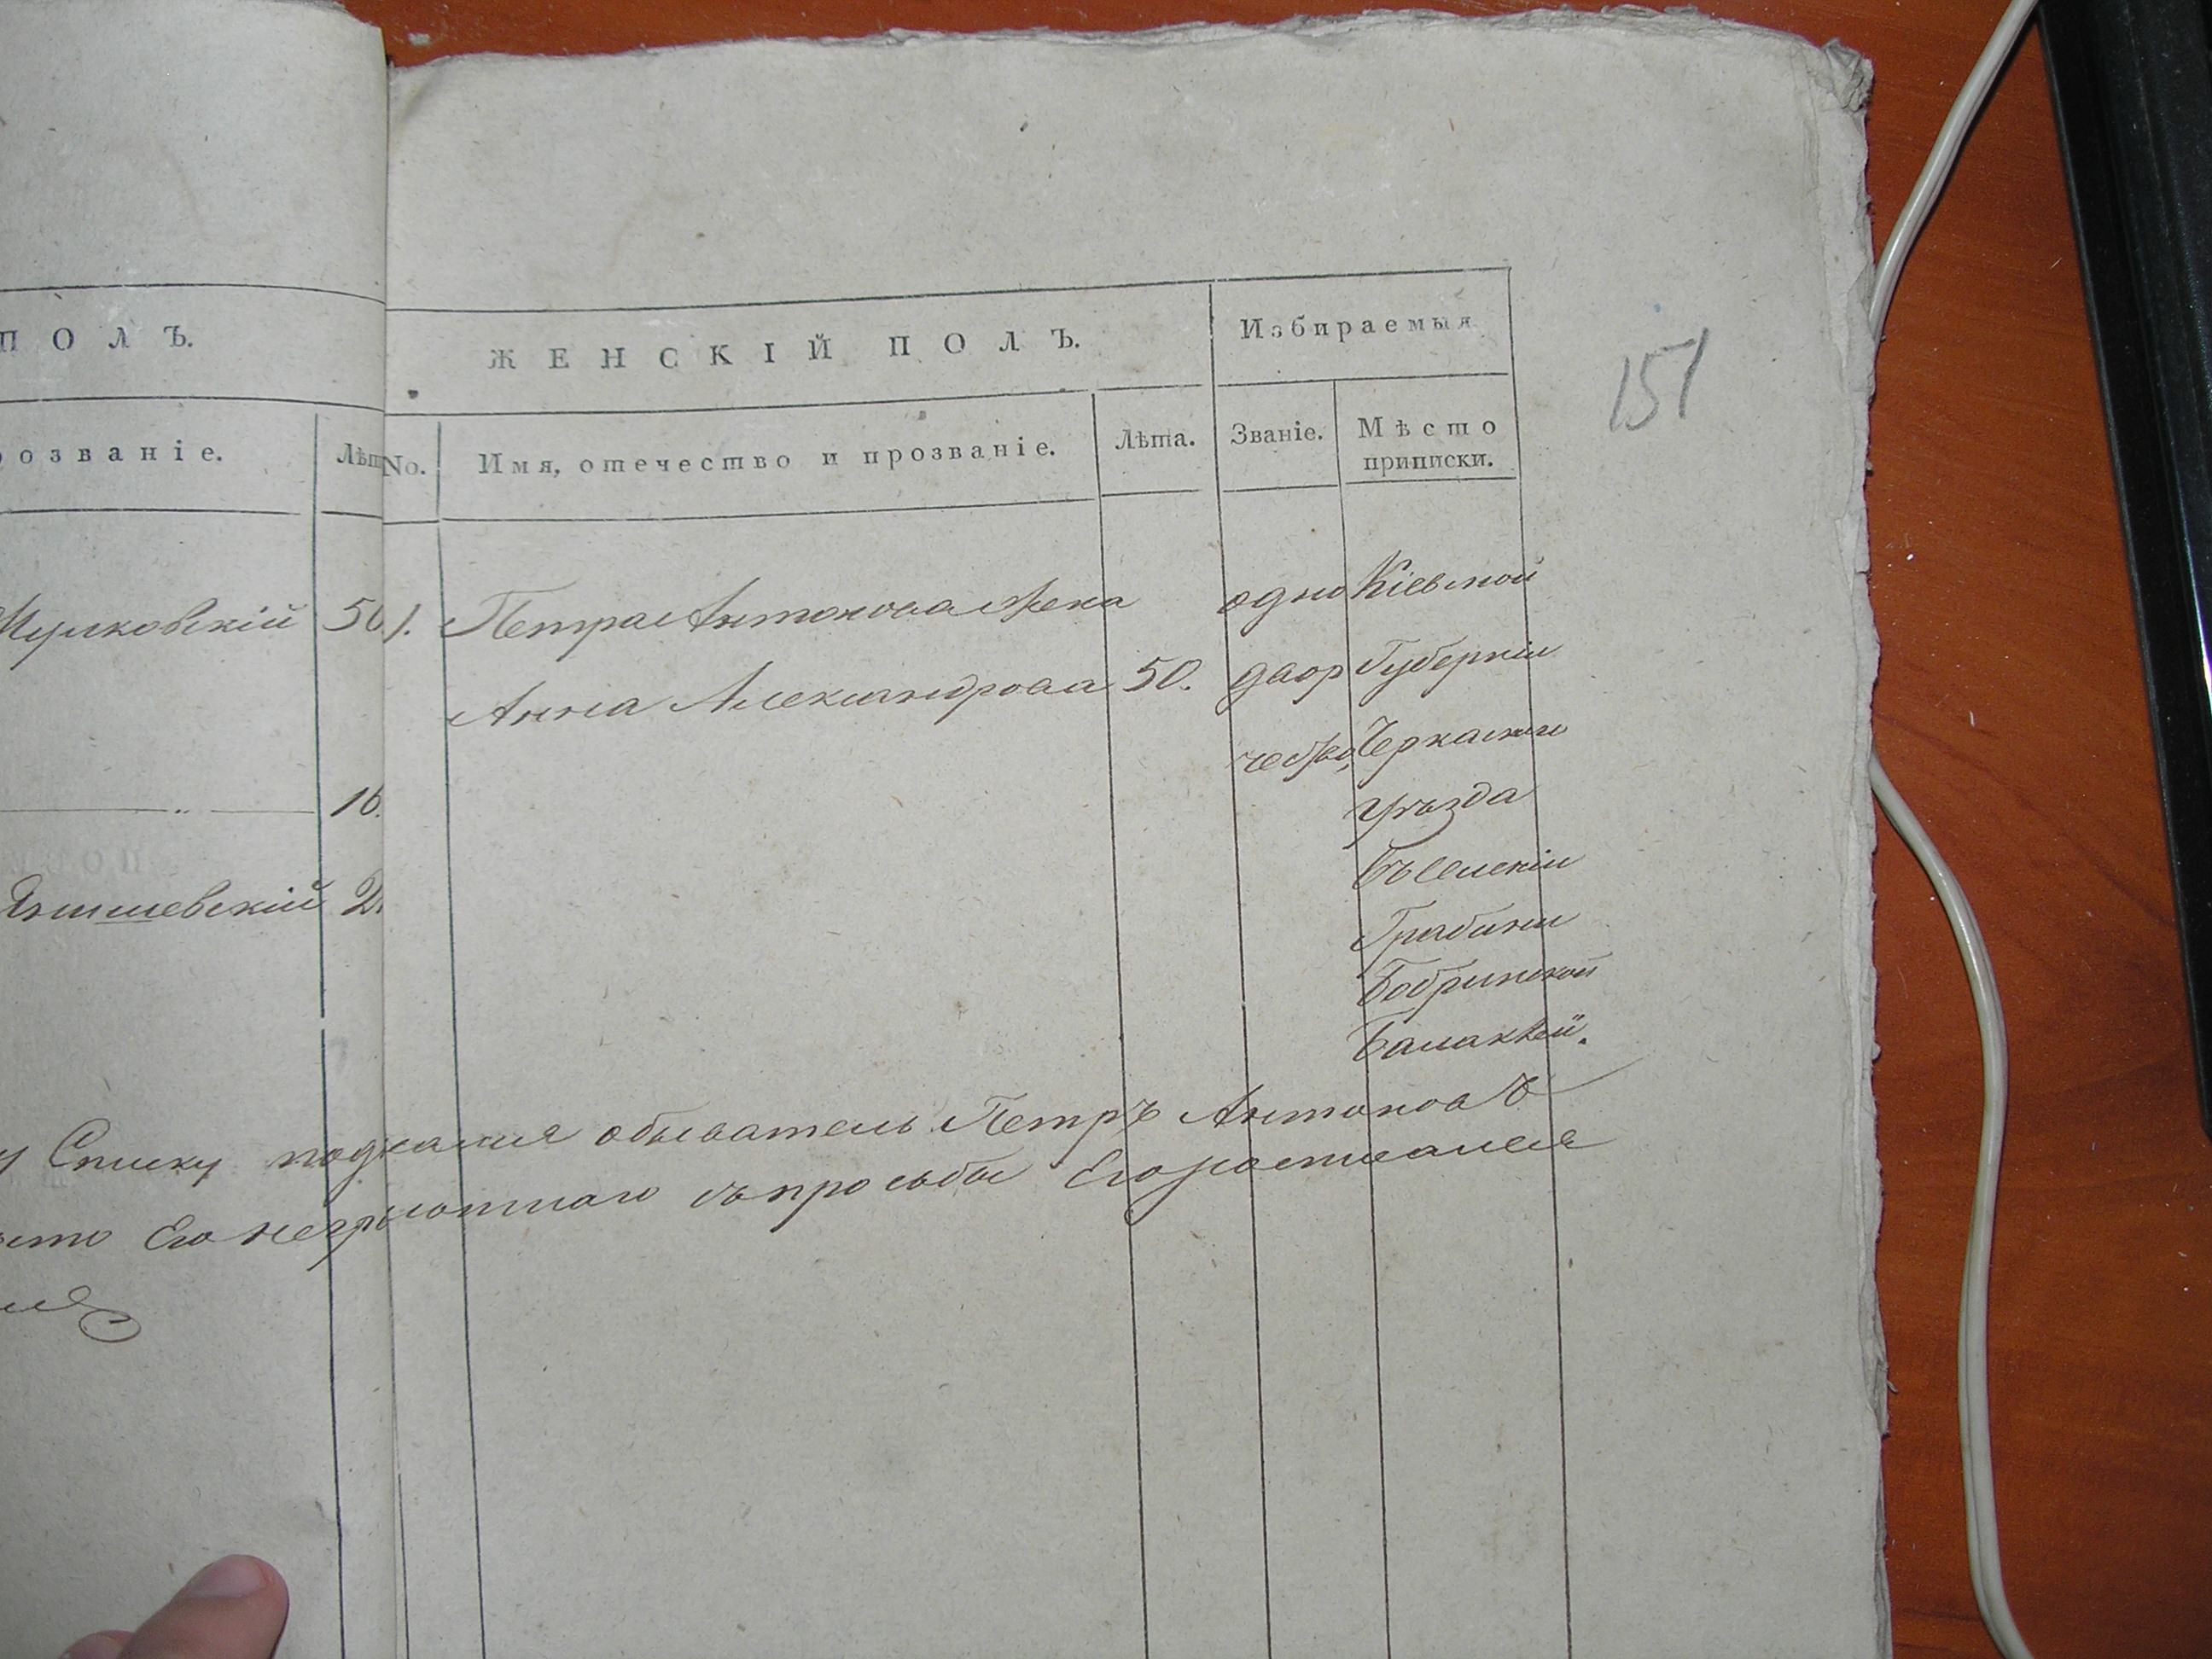 ПОЛЪ.
розваніе.
Лѣт
Мушковскій 50
16.
Яншшевскій 2
151
ЖЕНСКІЙ ПОЛЪ.
Избираемыя
No.
Имя, отечество и прозваніе.
Лѣта.
Званіе.
Мѣсто
приписки.
1. Петра Антонова Жена
Анна Александрова 50.
одно
двор
чество,
Кіевской
Губерніи
Черкаскаго
Уѣзда
Въ селеніи
Графини
Бобринской
Балаклей.
у Списку подданія обыватель Петръ Антоновъ
его неграмотнаго въ просьбы Его росписался